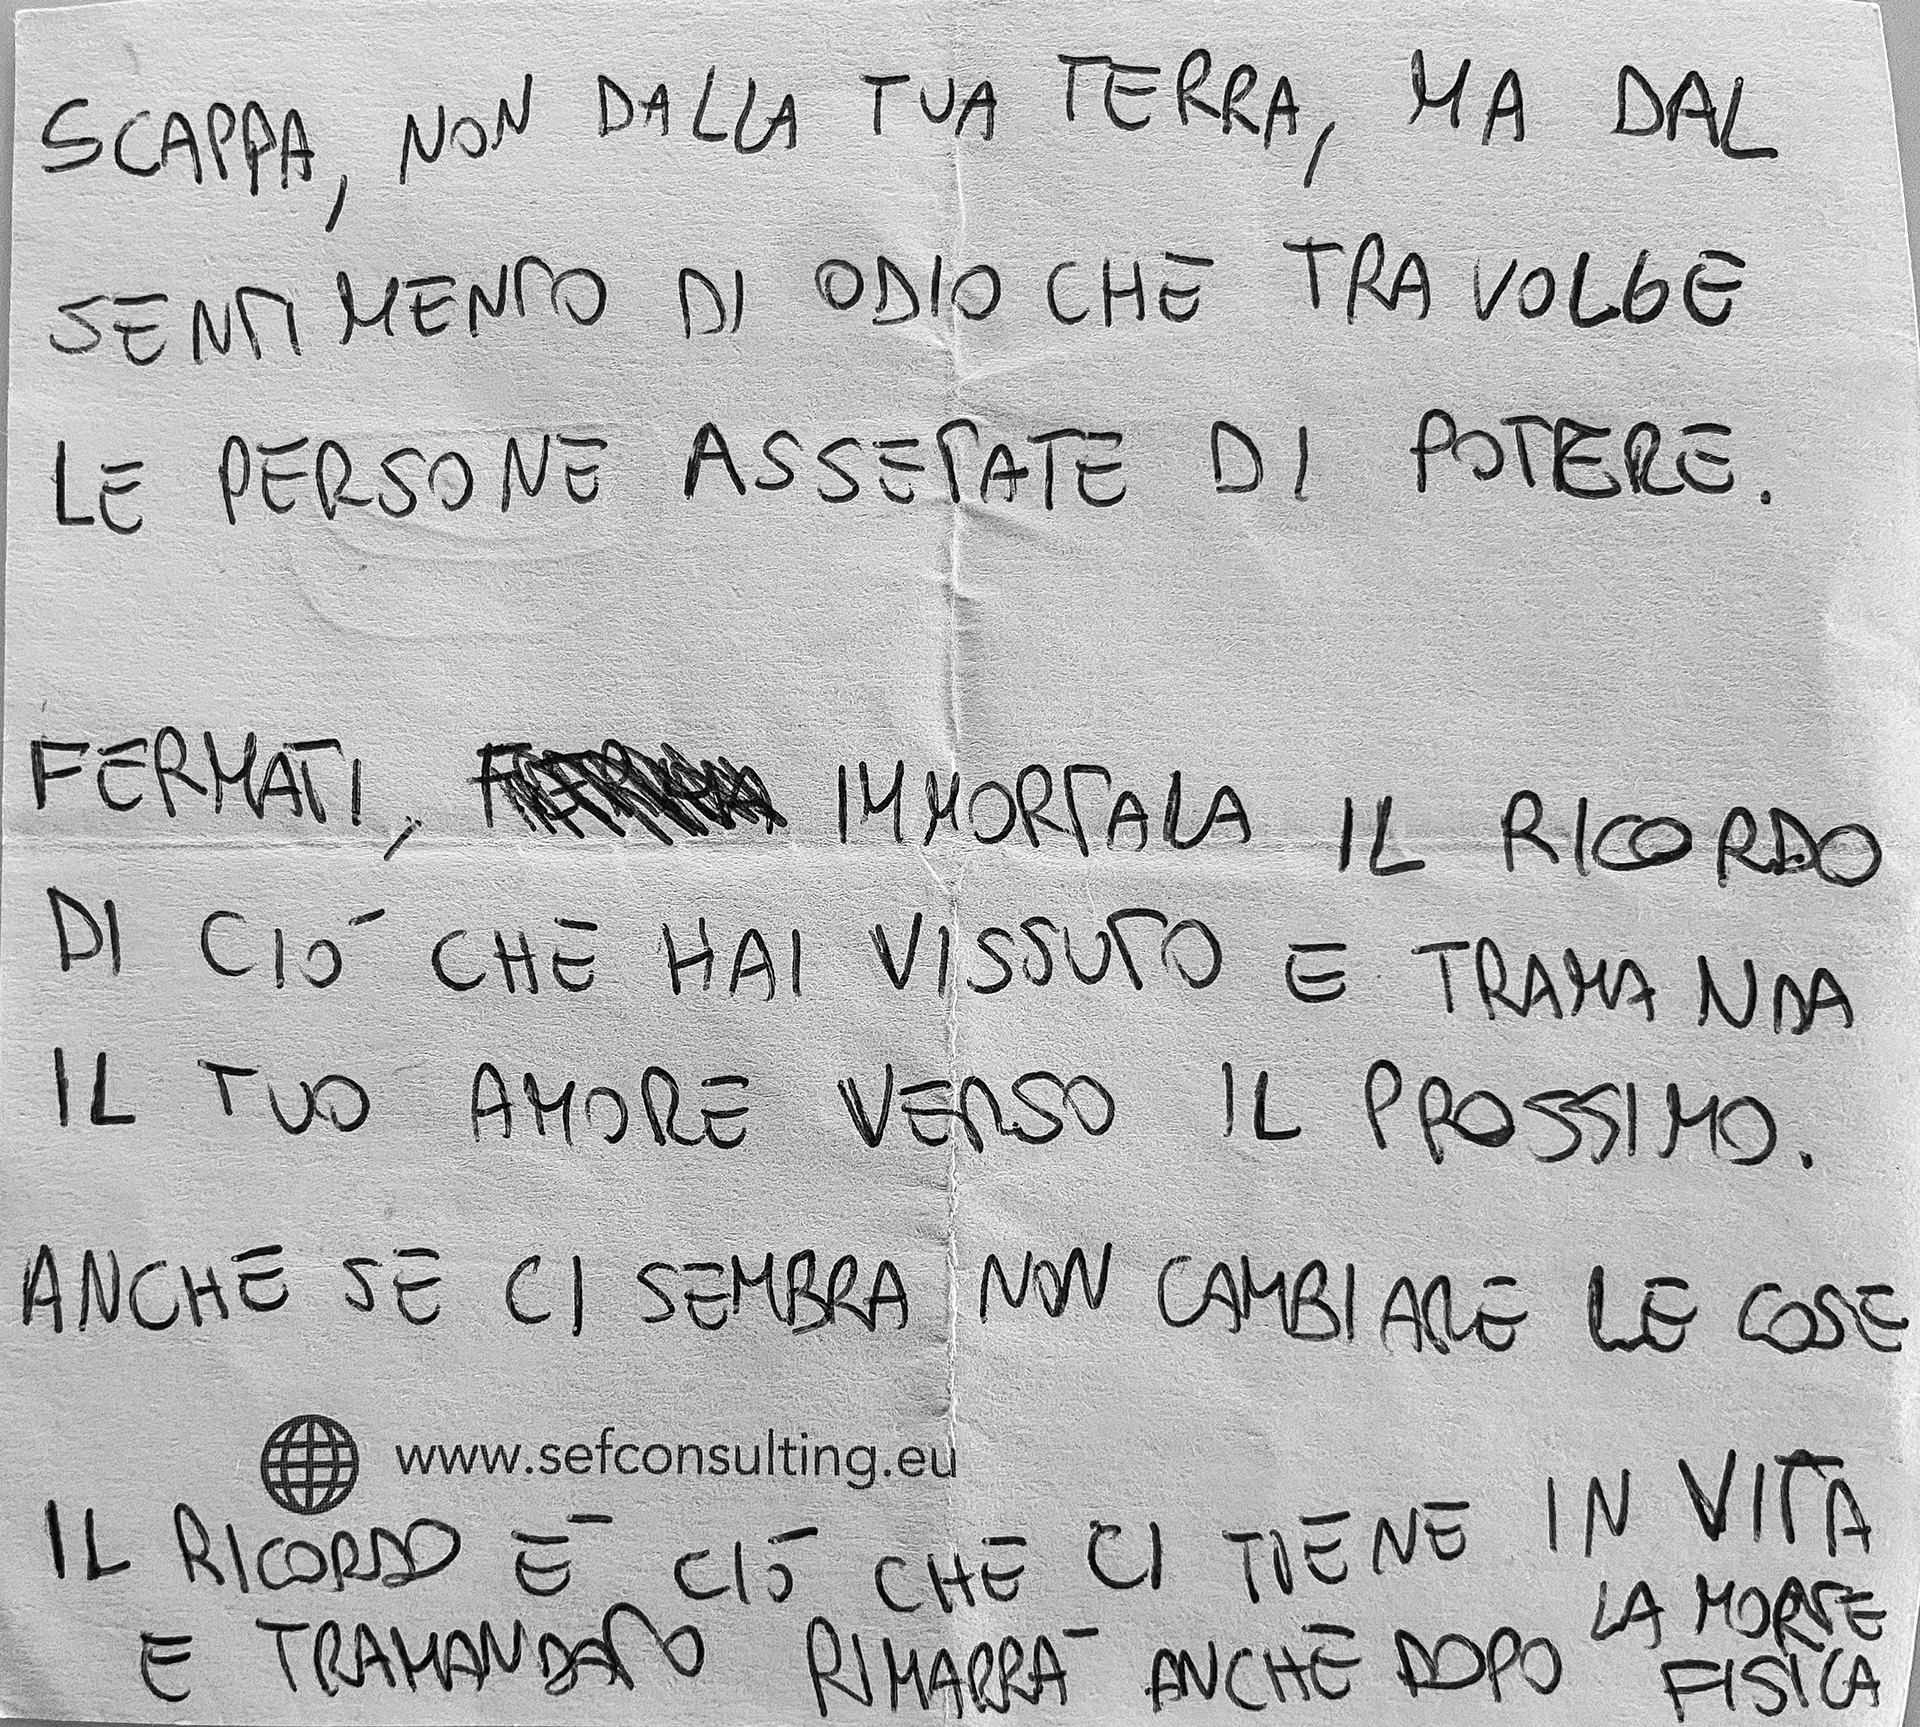 SCAPPA, NON DALLA TUA TERRA, MA DAL
SENTIMENTO DI ODIO CHE TRAVOLGE
LE PERSONE ASSETATE DI POTERE.
FERMATI, IMMORTALA IL RICORDO
DI CIÒ CHE HAI VISSUTO E TRAMANDA
IL TUO AMORE VERSO IL PROSSIMO.
ANCHE SE CI SEMBRA NON CAMBIARE LE COSE
www.sefconsulting.eu
IL RICORDO È CIÒ CHE CI TIENE IN VITA
E TRAMANDATO RIMARRÀ ANCHE DOPO LA MORTE
FISICA